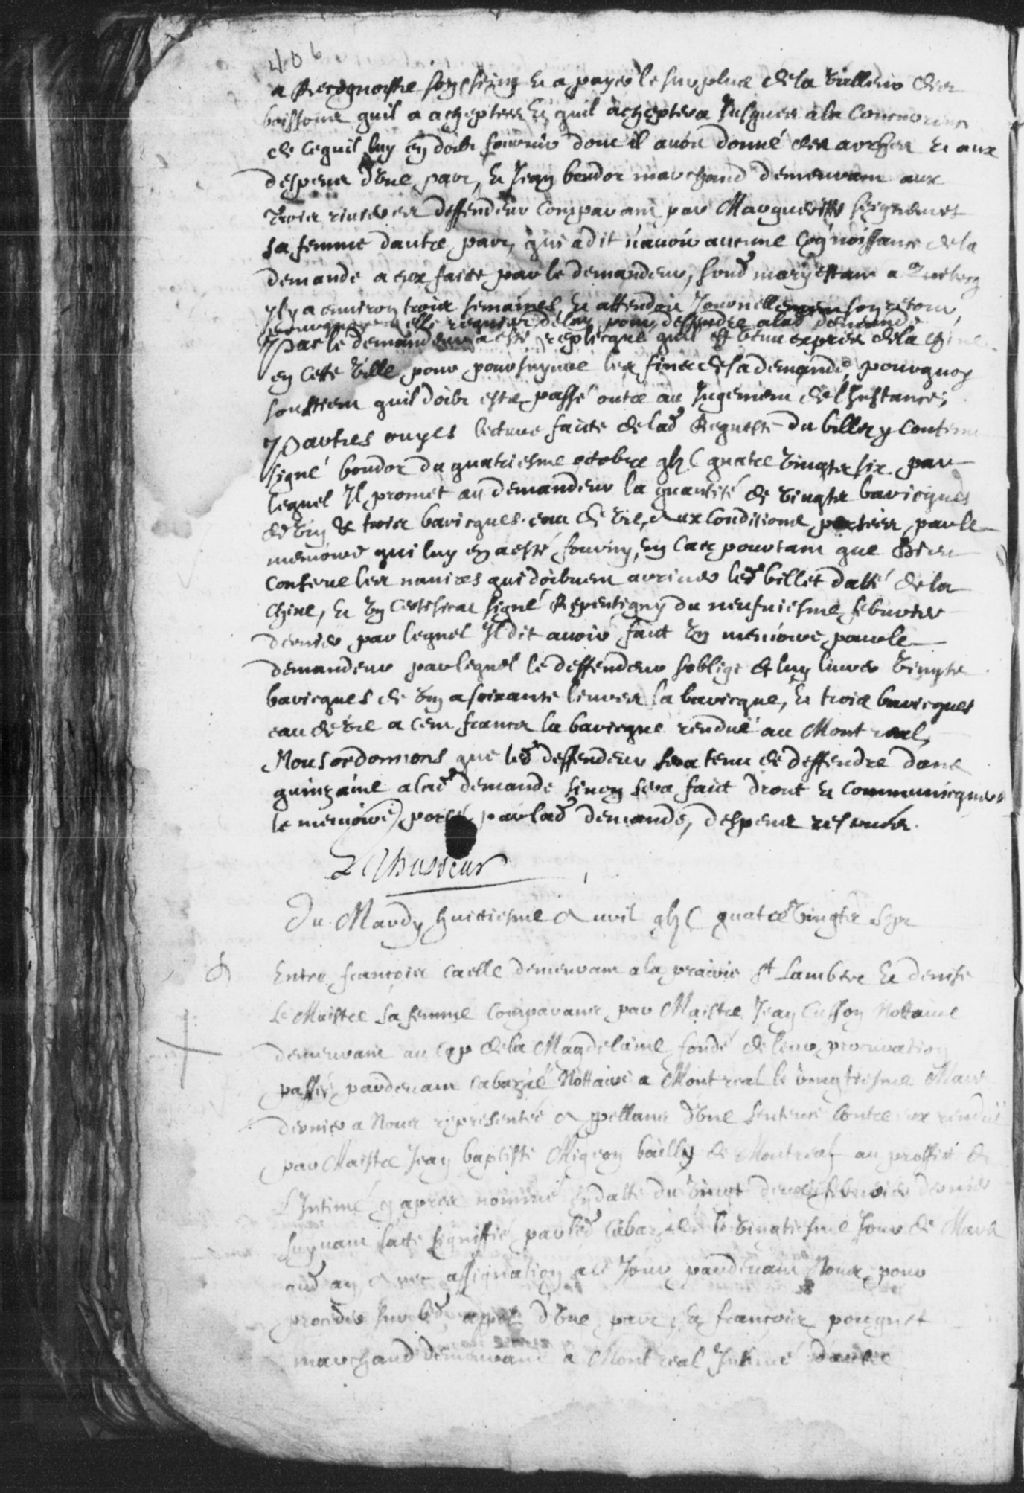 406
a Recognoistre son seing et a payer le surplus de la valleur des
boissons quil a acheptées et quil acheptera jusques a la concurance
de ce quil luy en doibt fournir dont il avoit donné des arrhes et aux
despens d'Une part, et Jean boudor marchand demeurant aux
trois rivieres deffendeur comparant par Marguerite seigneuret
sa femme dautre part, qui a dit n'avoir aucune cognoissance de la
demande a eux faite par le demandeur, sond mary estant a Quebecq
y a environ trois semaines et attendant Journellement son retour
pourquoy elle requier delay pour deffendre a lad demande
Par le demandeur a esté replicqué quil est venu exprès de la Chine
en cette Ville pour poursuyvre les fins de sa demande, pourquoy
soustient quil doibt estre passé outre au Jugement de l'Instance;
Parties ouyes lecture faicte de lad Requeste du billet y contenu
signé boudor du quatriesme octobre gbjC quatre vingts six par
lequel Il promet au demandeur la quantité de vingts baricques
de vin & trois baricques eau de vie, aux conditions portées par le
memoire qui luy en a esté fourny, en cas pourtant que Dieu
conserve les navires qui doibvent arriver led billet datté de la
Chine, et Un certificat signé Repentigny du neufviesme febvrier
dernier par lequel Il dit avoir fait Un memoire pour le
demandeur par lequel le deffendeur soblige de luy livrer vingts
baricques de vin a soixante livres la baricque, et trois baricques
eau de vie a cent francs la baricque rendüe au Montreal,
Nous ordonnons que led deffendeur sera tenu de deffendre dans
quinzaine a lad demande sinon sera fait droit et communicquera
le memoire porté par lad demande, despens reservés.
LeChasseur
Du Mardy huictiesme Avril gbjC quatre Vingts Sept
Entre françois caelle demeurant a la prairie St Lambert et denise
Le Maistre sa femme comparants par Maistre Jean Cusson Nottaire
demeurant au Cap de la Magdelaine fondé de leur procuration
passée pardevant Cabazié Nottaire a Montreal le vingtiesme Mars
dernier a Nous representée appellants d'Une sentence contre eux rendüe
par Maistre Jean baptiste Migeon bailly de Montreal au proffit de
L'Intimé cy apres nommé en datte du vingt febvrier dernier
suyvant l'acte signiffié par led Cabazié le vingtiesme Jour de Mars
aud an avec assignation a ce Jour pardevant Nous pour
proceder sur led appel d'Une part, Et françois pougnet
marchand demeurant a Montreal Intimé dautre